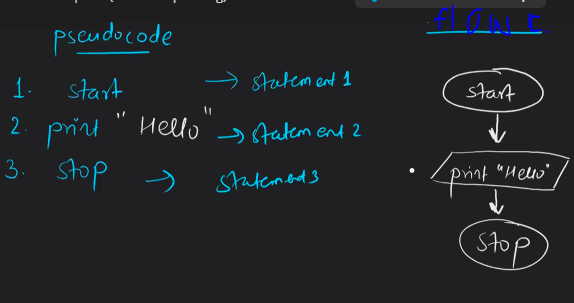 pseudocode
1. start → statement 1
2. print "Hello" → statement 2
3. stop → statement 3
start
print "Hello"
stop